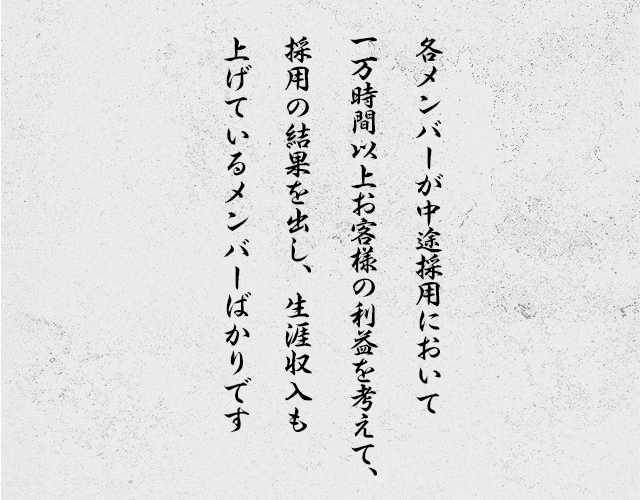 各メンバーが中途採用において
一万時間以上お客様の利益を考えて、
採用の結果を出し、生涯収入も
上げているメンバーばかりです